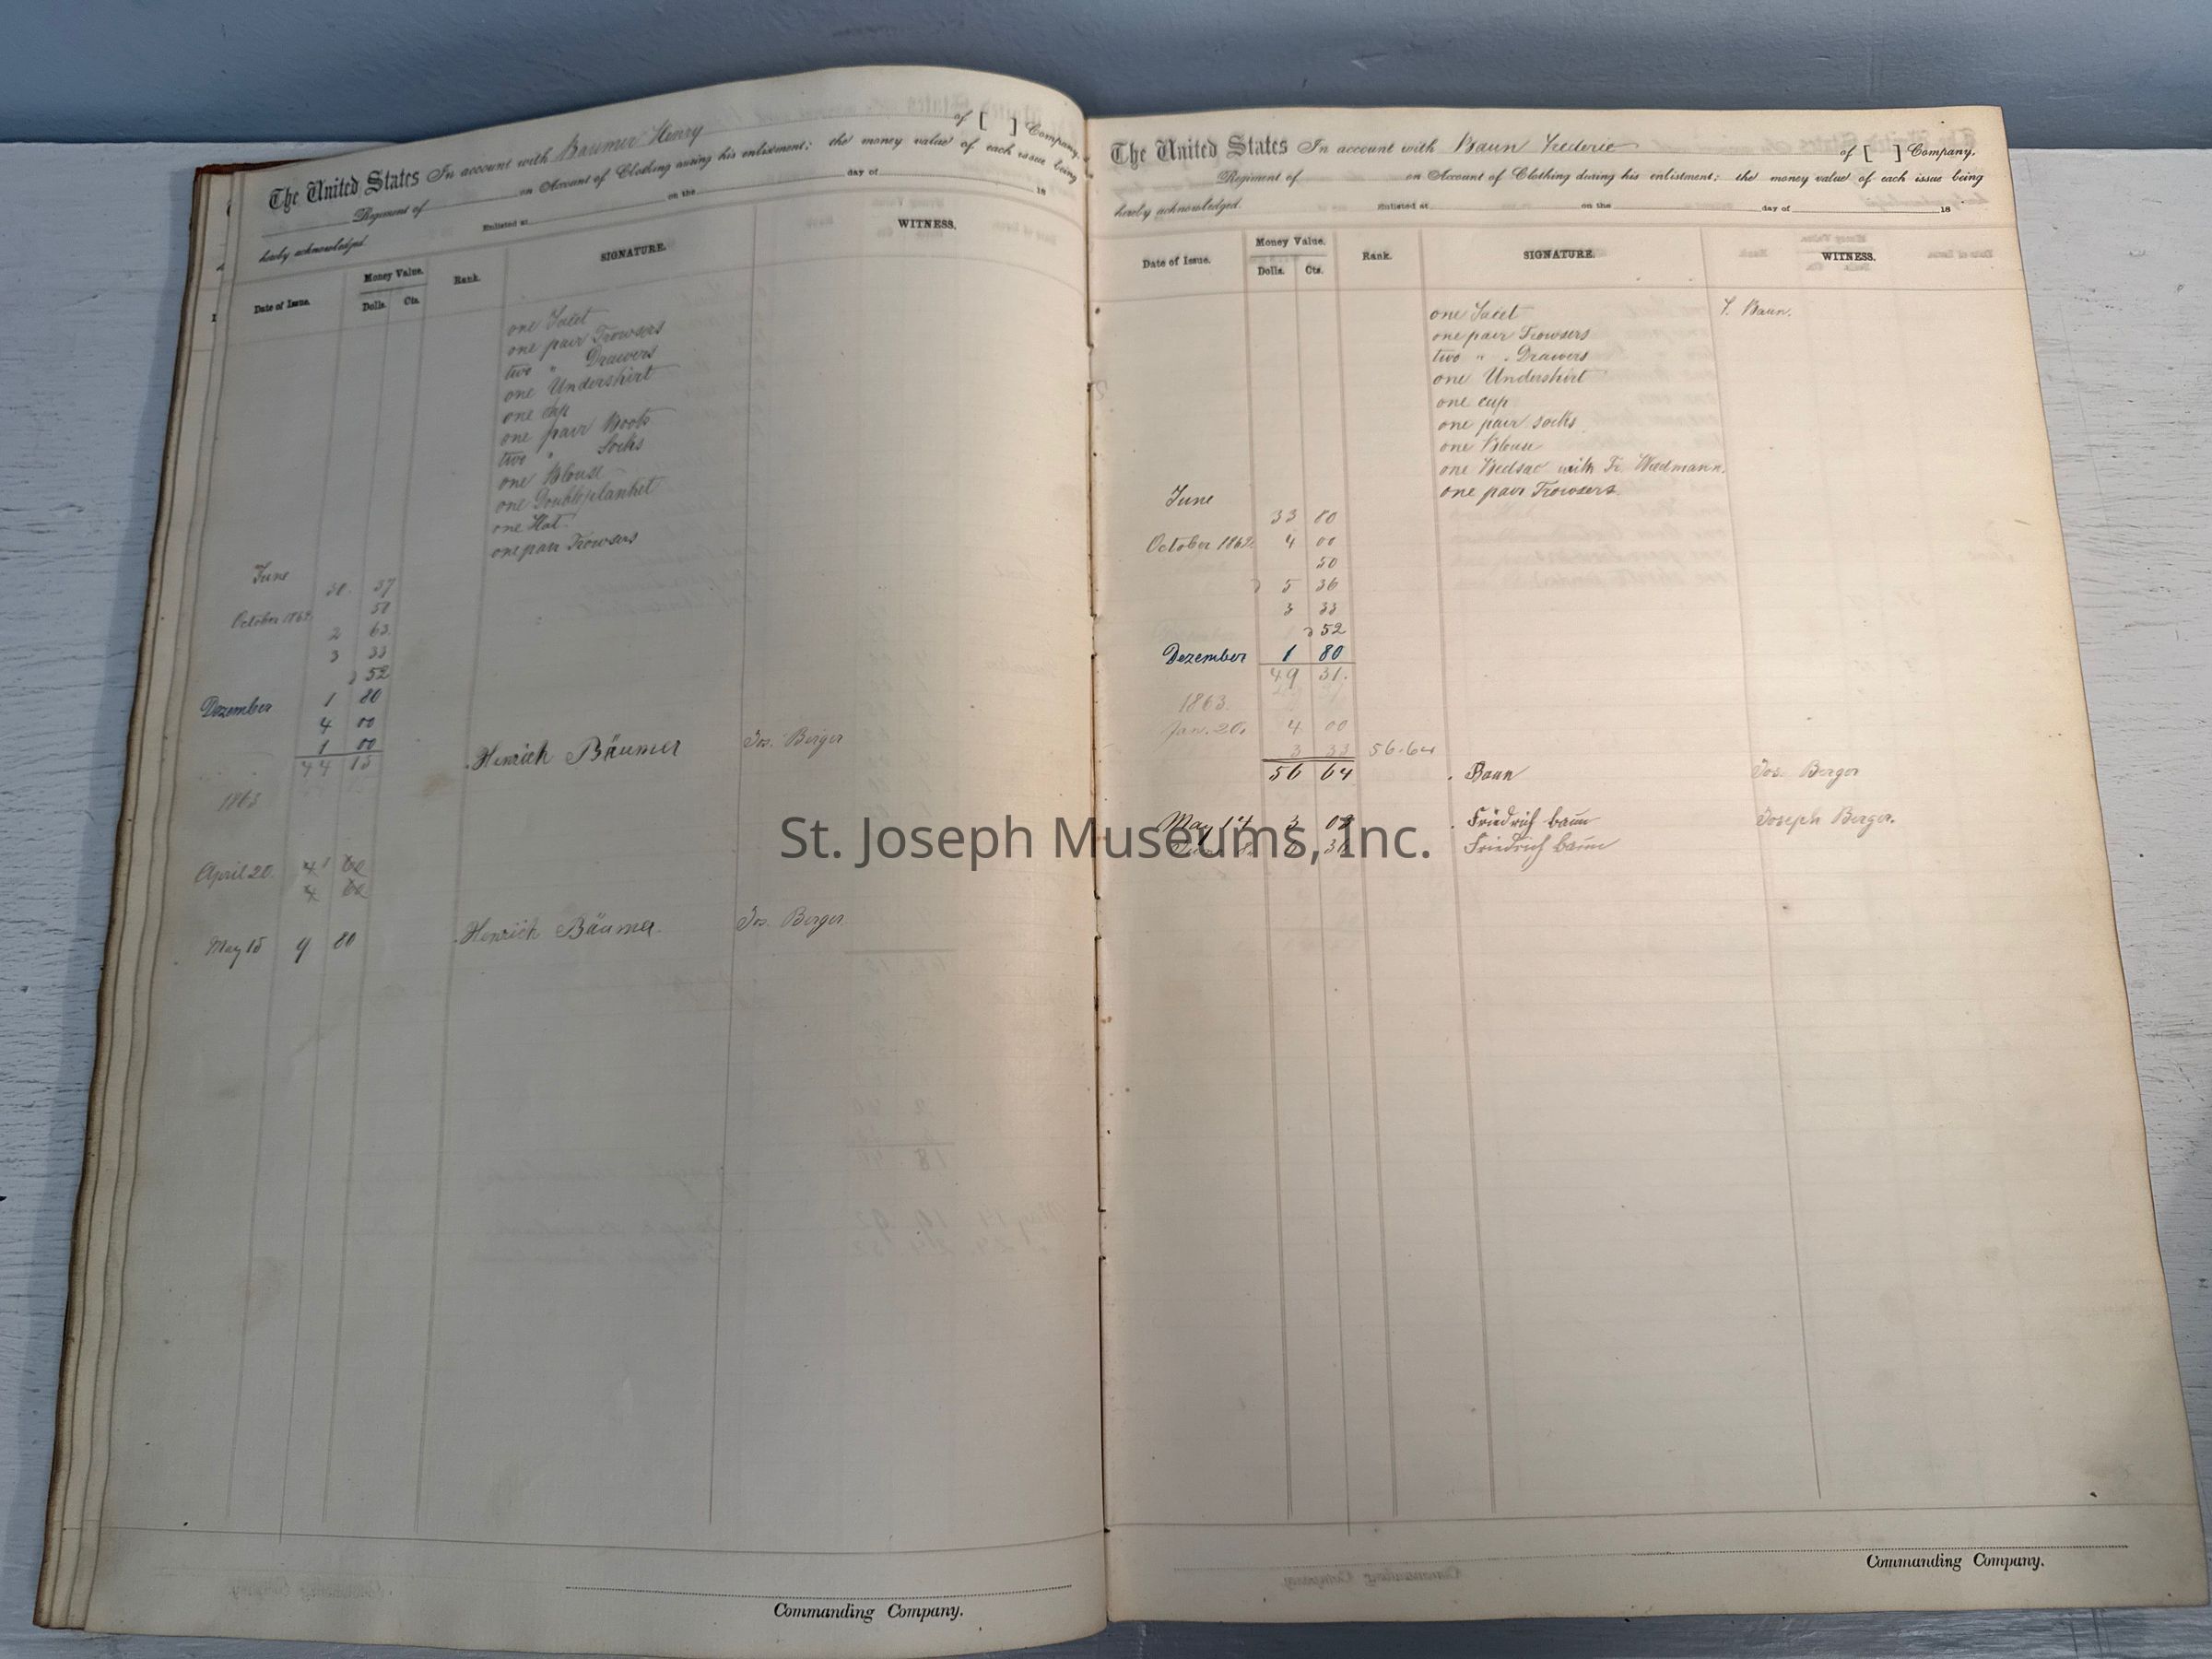 The United States In account with Baumer Henry of [ ] Company,
Regiment of on Account of Clothing during his enlistment; the money value of each issue being
hereby acknowledged. Enlisted at on the day of 18
Date of Issue. Money Value. Rank. SIGNATURE. WITNESS.
Dolls. Cts.
one Jacet
one pair Trowsers
two " Drawers
one Undershirt
one cap
one pair Boots
two " Socks
one Blouse
one Doubleplanket
one Hat
one pair Trowsers
June
30 37
October 1862 50
2 63
3 33
52
Dezember 1 80
4 00
1 00 Henrich Bäumer Jos. Berger
44 15
1863
April 20.
May 15 9 80 Henrich Bäumer Jos. Berger
Commanding Company.
The United States In account with Baun Frederic of [ ] Company.
Regiment of on Account of Clothing during his enlistment; the money value of each issue being
hereby acknowledged. Enlisted at on the day of 18
Date of Issue. Money Value. Rank. SIGNATURE. WITNESS.
Dolls. Cts.
one Jacet F. Baun.
one pair Trowsers
two " Drawers
one Undershirt
one cap
one pair socks
one Blouse
one Bedsac with Fr. Wiedmann.
one pair Trowsers
June
33 80
October 1862 4 00
50
5 36
3 33
52
Dezember 1 80
49 31.
1863.
Jan. 20. 4 00
3 33 56.64
56 64 Baun Jos. Berger
May 14 3 Friedrich baun Joseph Berger.
Friedrich baun
Commanding Company.
St. Joseph Museums, Inc.